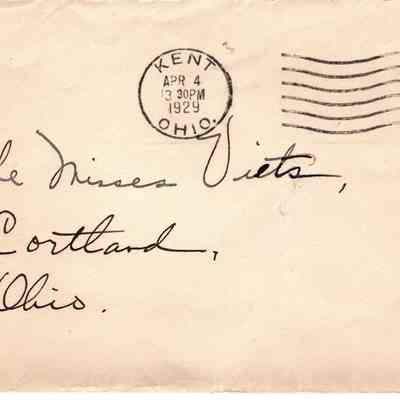 KENT
APR 4
3 30PM
1929
OHIO.
he Misses Viets,
Cortland,
Ohio.